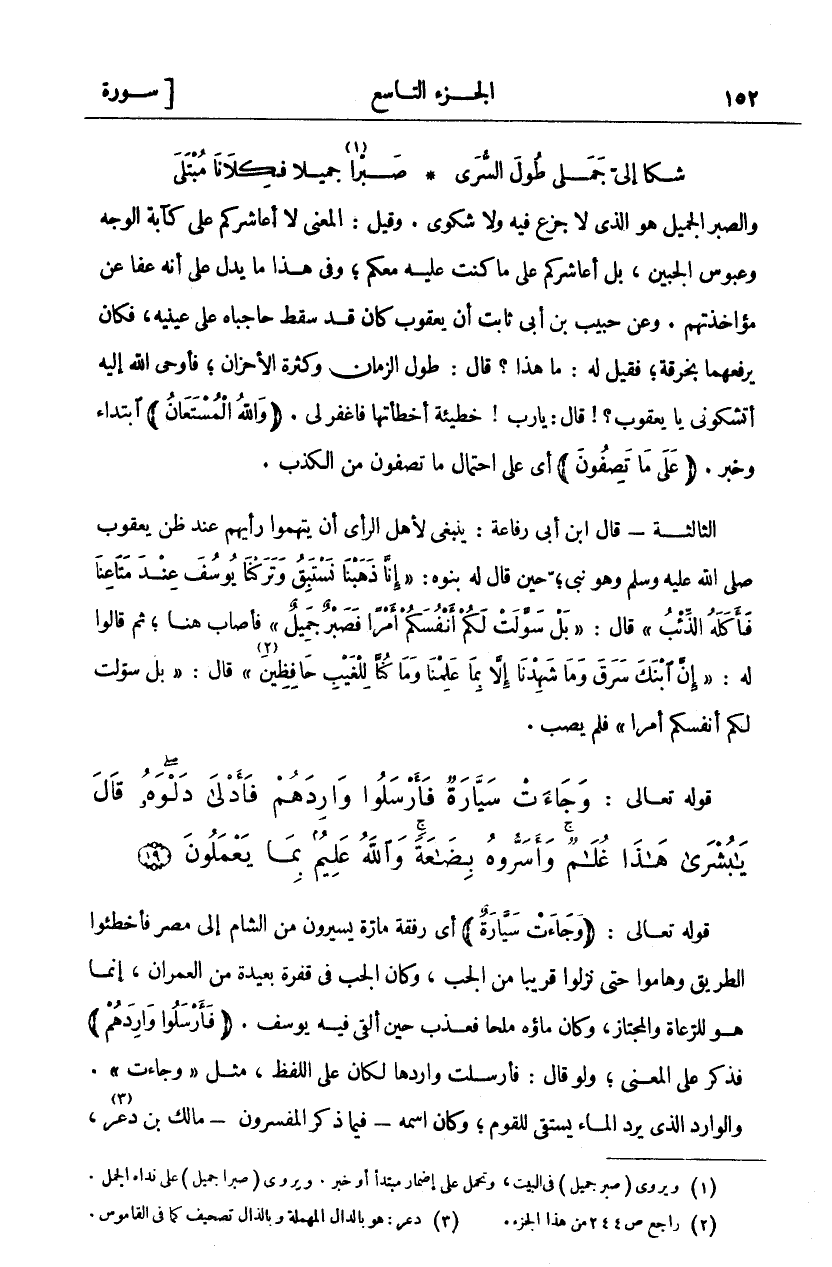 ١٥٢ الجزء التاسع [ سورة
شكا إلىّ جَمَلى طُولَ السُّرَى * صَبْرًا (١) جميلا فكِلَانَا مُبْتَلَى
والصبر الجميل هو الذى لا جزع فيه ولا شكوى . وقيل : المعنى لا أعاشركم على كآبة الوجه
وعبوس الجبين ، بل أعاشركم على ما كنت عليه معكم ؛ وفى هذا ما يدل على أنه عفا عن
مؤاخذتهم . وعن حبيب بن أبى ثابت أن يعقوب كان قد سقط حاجباه على عينيه ، فكان
يرفعهما بخرقة ؛ فقيل له : ما هذا ؟ قال : طول الزمان وكثرة الأحزان ؛ فأوحى الله إليه
أتشكونى يا يعقوب ؟ ! قال : يارب ! خطيئة أخطأتها فاغفر لى . ﴿ وَاللهُ الْمُسْتَعَانُ ﴾ ابتداء
وخبر . ﴿ عَلَى مَا تَصِفُونَ ﴾ أى على احتمال ما تصفون من الكذب .
الثالثة – قال ابن أبى رفاعة : ينبغى لأهل الرأى أن يتهموا رأيهم عند ظن يعقوب
صلى الله عليه وسلم وهو نبى ؛ حين قال له بنوه : « إِنَّا ذَهَبْنَا نَسْتَبِقُ وَتَرَكْنَا يُوسُفَ عِنْدَ مَتَاعِنَا
فَأَكَلَهُ الذِّئْبُ » قال : « بَلْ سَوَّلَتْ لَكُمْ أَنْفُسُكُمْ أَمْرًا فَصَبْرٌ جَمِيلٌ » فأصاب هنا ؛ ثم قالوا
له : « إِنَّ ٱبْنَكَ سَرَقَ وَمَا شَهِدْنَا إِلَّا بِمَا عَلِمْنَا وَمَا كُنَّا لِلْغَيْبِ حَافِظِينَ (٢) » قال : « بل سوّلت
لكم أنفسكم أمرا » فلم يصب .
قوله تعالى : وَجَآءَتْ سَيَّارَةٌ فَأَرْسَلُوا وَارِدَهُمْ فَأَدْلَىٰ دَلْوَهُۥۖ قَالَ
يَٰبُشْرَىٰ هَٰذَا غُلَٰمٌۚ وَأَسَرُّوهُ بِضَٰعَةًۚ وَٱللَّهُ عَلِيمٌۢ بِمَا يَعْمَلُونَ ﴿١٩﴾
قوله تعالى : ﴿ وَجَاءَتْ سَيَّارَةٌ ﴾ أى رفقة مارّة يسيرون من الشام إلى مصر فأخطئوا
الطريق وهاموا حتى نزلوا قريبا من الجب ، وكان الجب فى قفرة بعيدة من العمران ، إنما
هو للرعاة والمجتاز ، وكان ماؤه ملحا فعذب حين ألقى فيه يوسف . ﴿ فَأَرْسَلُوا وَارِدَهُمْ ﴾
فذكر على المعنى ؛ ولو قال : فأرسلت واردها لكان على اللفظ ، مثل « وجاءت » .
والوارد الذى يرد الماء يستقى للقوم ؛ وكان اسمه – فيما ذكر المفسرون – مالك بن دعر (٣) ،
(١) ويروى ( صبر جميل ) فى البيت ، وتحمل على إضمار مبتدأ أو خبر . ويروى ( صبرا جميل ) على نداء الجمل .
(٢) راجع ص ٢٤٤ من هذا الجزء . (٣) دعر : هو بالدال المهملة وبالذال تصحيف كما فى القاموس .